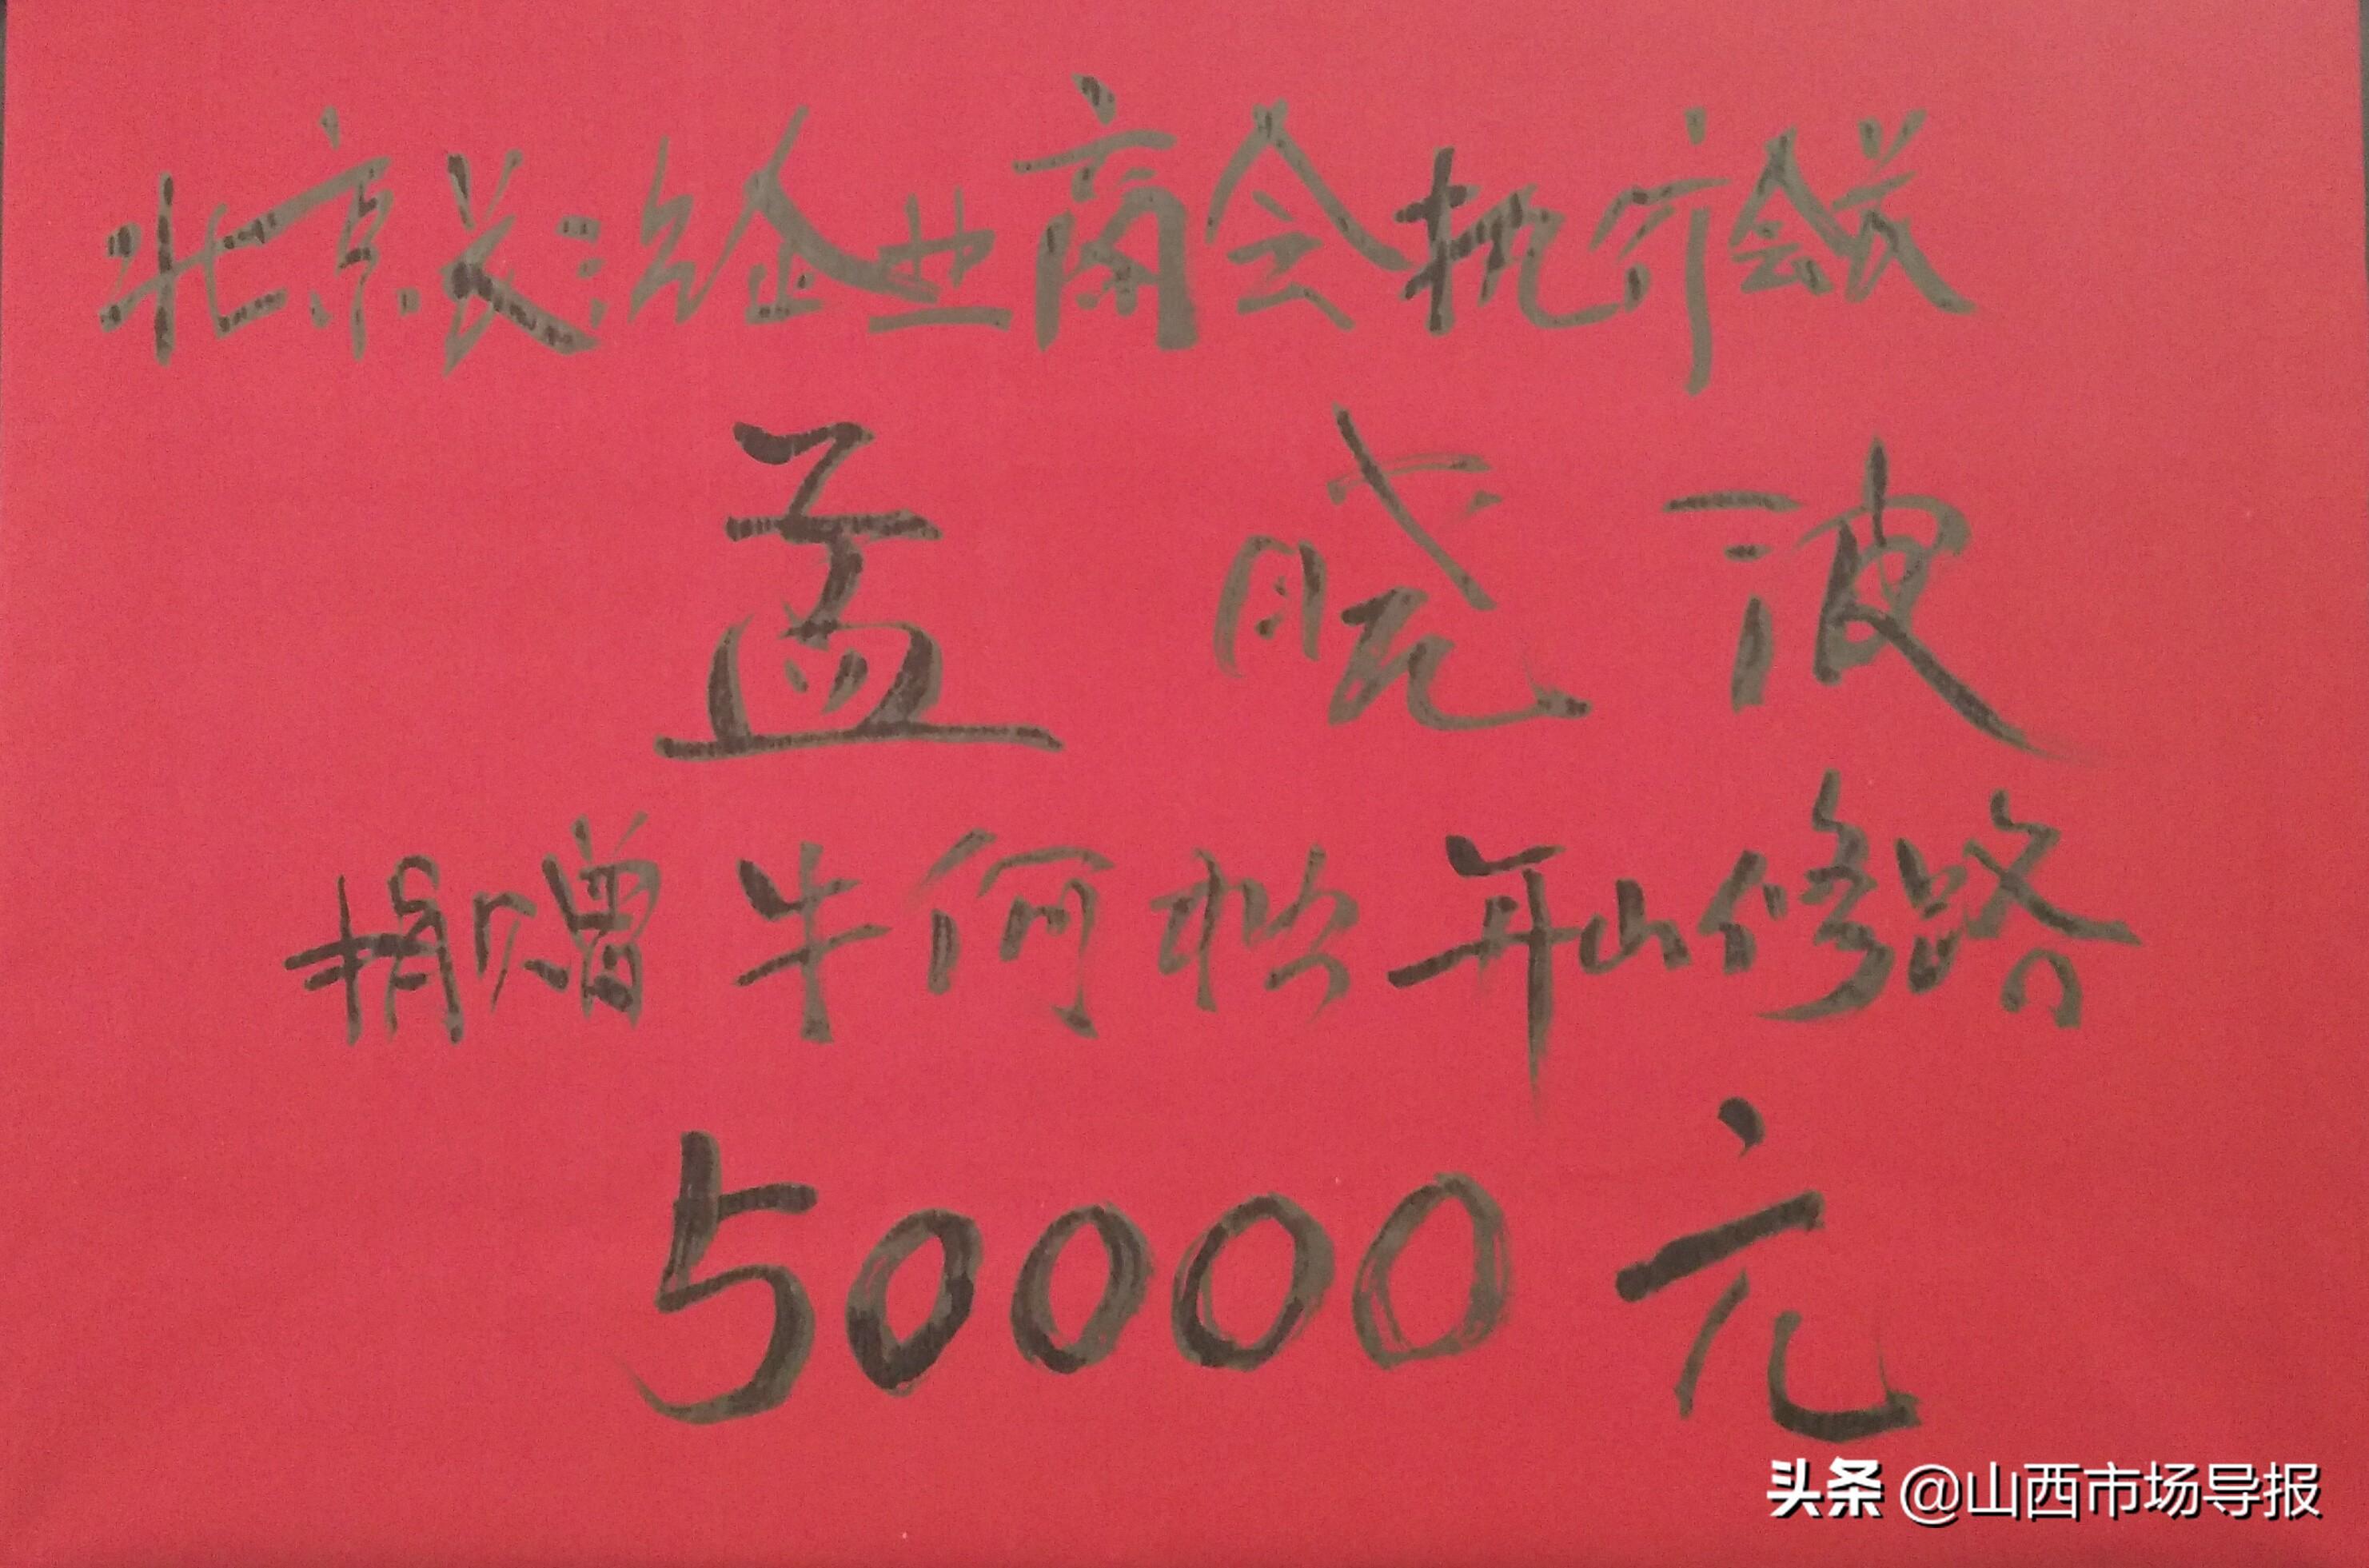 北京长治企业商会执行会长
孟晓波
捐赠牛何松年山修路
50000元
头条 @山西市场导报